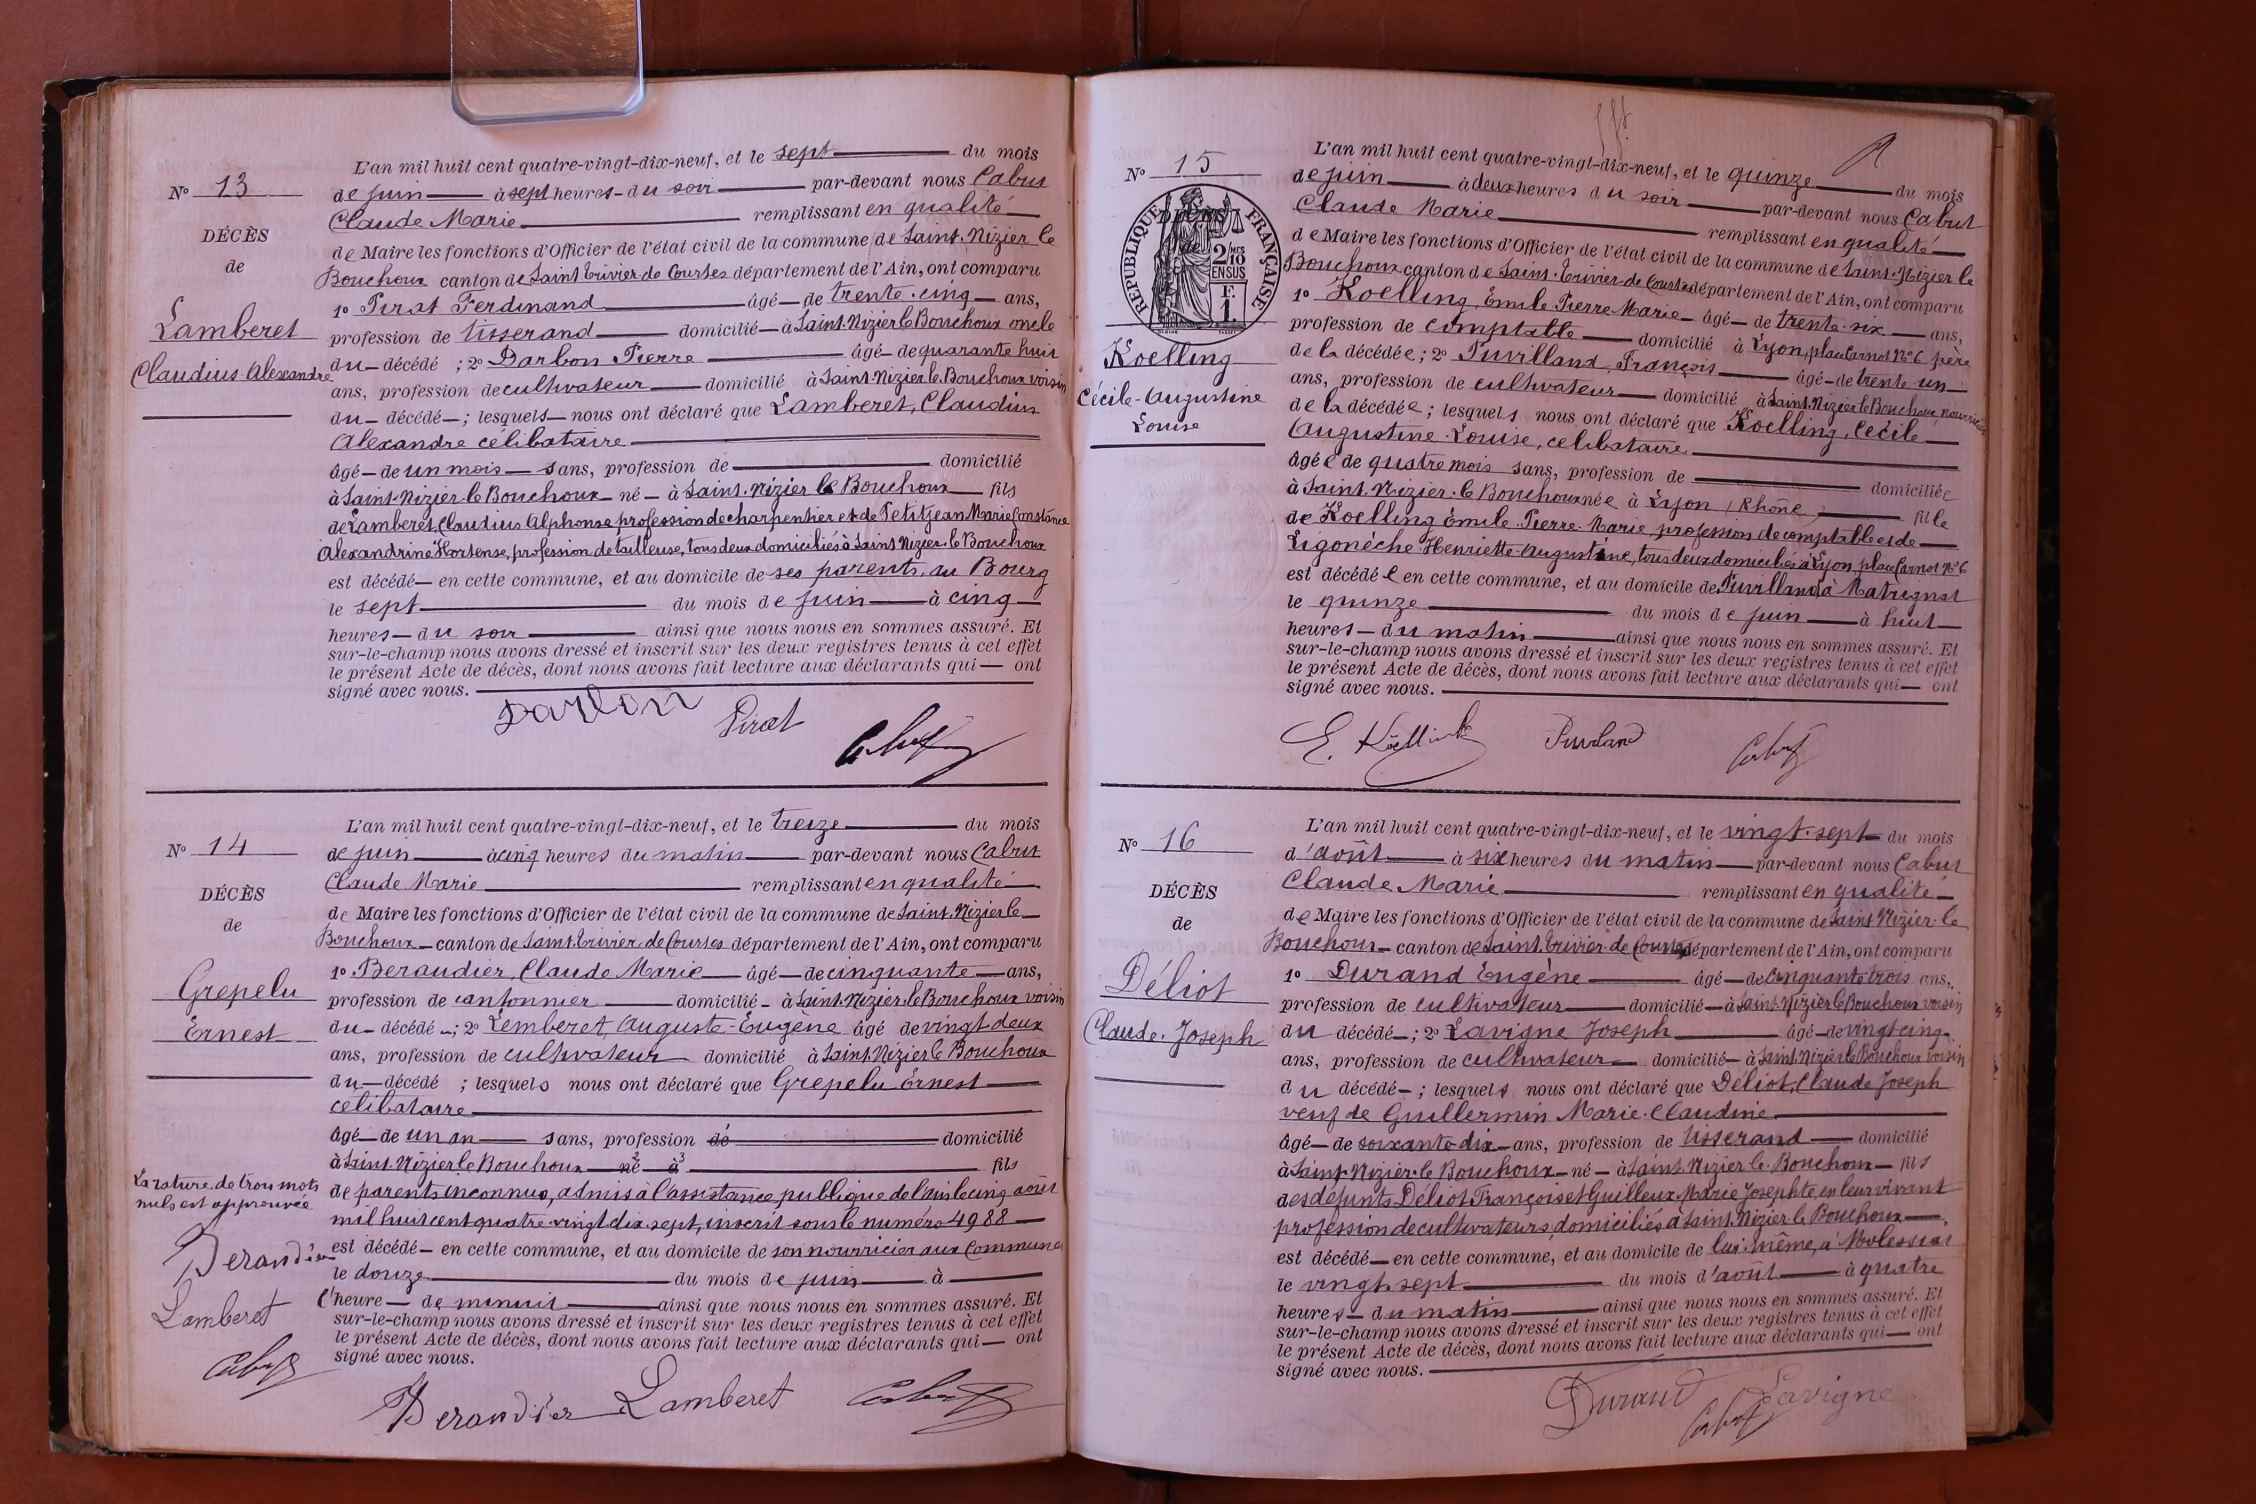 N° 13
DÉCÈS
de
Lamberet
Claudius Alexandre
L'an mil huit cent quatre-vingt-dix-neuf, et le sept du mois
de juin à sept heures du soir par-devant nous Cabut
Claude Marie remplissant en qualité
de Maire les fonctions d'Officier de l'état civil de la commune de Saint-Nizier le
Bouchoux canton de Saint Trivier de Courtes département de l'Ain, ont comparu
1° Pirat Ferdinand âgé de trente-cinq ans,
profession de tisserand domicilié à Saint-Nizier le Bouchoux oncle
du décédé ; 2° Darbon Pierre âgé de quarante huit
ans, profession de cultivateur domicilié à Saint-Nizier le Bouchoux voisin
du décédé ; lesquels nous ont déclaré que Lamberet, Claudius
Alexandre célibataire
âgé de un mois sans, profession de domicilié
à Saint-Nizier-le Bouchoux né à Saint-Nizier le Bouchoux fils
de Lamberet, Claudius Alphonse profession de charpentier et de Petitjean Marie Constance
Alexandrine Hortense, profession de tailleuse, tous deux domiciliés à Saint Nizier-le Bouchoux
est décédé en cette commune, et au domicile de ses parents, au Bourg
le sept du mois de juin à cinq
heures du soir ainsi que nous nous en sommes assuré. Et
sur-le-champ nous avons dressé et inscrit sur les deux registres tenus à cet effet
le présent Acte de décès, dont nous avons fait lecture aux déclarants qui ont
signé avec nous.
Darbon Pirat Cabut
N° 14
DÉCÈS
de
Grepelu
Ernest
L'an mil huit cent quatre-vingt-dix-neuf, et le treize du mois
de juin à cinq heures du matin par-devant nous Cabut
Claude Marie remplissant en qualité
de Maire les fonctions d'Officier de l'état civil de la commune de Saint-Nizier le
Bouchoux canton de Saint Trivier de Courtes département de l'Ain, ont comparu
1° Beraudier Claude Marie âgé de cinquante ans,
profession de cantonnier domicilié à Saint-Nizier-le Bouchoux voisin
du décédé ; 2° Lemberet Auguste-Eugène âgé de vingt deux
ans, profession de cultivateur domicilié à Saint-Nizier le Bouchoux
du décédé ; lesquels nous ont déclaré que Grepelu Ernest
célibataire
âgé de un an sans, profession de domicilié
à Saint-Nizier le Bouchoux né à fils
de parents inconnus, admis à l'assistance publique de l'Ain le cinq août
mil huit cent quatre-vingt dix sept, inscrit sous le numéro 4988
est décédé en cette commune, et au domicile de son nourricier aux Communes
le douze du mois de juin à
l'heure de minuit ainsi que nous nous en sommes assuré. Et
sur-le-champ nous avons dressé et inscrit sur les deux registres tenus à cet effet
le présent Acte de décès, dont nous avons fait lecture aux déclarants qui ont
signé avec nous.
La rature de trois mots
nuls est approuvée
Beraudier
Lamberet
Cabut
Beraudier Lamberet Cabut
N° 15
RÉPUBLIQUE FRANÇAISE
2/10 MES
EN SUS
F.
1.
Koelling
Cécile-Augustine
Louise
L'an mil huit cent quatre-vingt-dix-neuf, et le quinze du mois
de juin à deux heures du soir par-devant nous Cabut
Claude Marie remplissant en qualité
de Maire les fonctions d'Officier de l'état civil de la commune de Saint-Nizier le
Bouchoux canton de Saint-Trivier de Courtes département de l'Ain, ont comparu
1° Koelling, Émile Pierre Marie âgé de trente-six ans,
profession de comptable domicilié à Lyon, place Carnot N° 6 père
de la décédée ; 2° Puvilland, François âgé de trente un
ans, profession de cultivateur domicilié à Saint-Nizier le Bouchoux nourricier
de la décédée ; lesquels nous ont déclaré que Koelling, Cécile
Augustine-Louise, célibataire
âgée de quatre mois sans, profession de domiciliée
à Saint-Nizier-le Bouchoux née à Lyon (Rhône) fille
de Koelling Émile-Pierre-Marie, profession de comptable et de
Ligonèche Henriette-Augustine, tous deux domiciliés à Lyon, place Carnot N° 6
est décédée en cette commune, et au domicile de Puvilland à Matrignat
le quinze du mois de juin à huit
heures du matin ainsi que nous nous en sommes assuré. Et
sur-le-champ nous avons dressé et inscrit sur les deux registres tenus à cet effet
le présent Acte de décès, dont nous avons fait lecture aux déclarants qui ont
signé avec nous.
E. Köelling Puviland Cabut
N° 16
DÉCÈS
de
Déliot
Claude-Joseph
L'an mil huit cent quatre-vingt-dix-neuf, et le vingt-sept du mois
d'août à six heures du matin par-devant nous Cabut
Claude Marie remplissant en qualité
de Maire les fonctions d'Officier de l'état civil de la commune de Saint Nizier-le
Bouchoux canton de Saint Trivier de Courtes département de l'Ain, ont comparu
1° Durand Eugène âgé de cinquante trois ans,
profession de cultivateur domicilié à Saint-Nizier le Bouchoux voisin
du décédé ; 2° Lavigne Joseph âgé de vingt cinq
ans, profession de cultivateur domicilié à Saint-Nizier le Bouchoux voisin
du décédé ; lesquels nous ont déclaré que Déliot, Claude Joseph
veuf de Guillermin Marie-Claudine
âgé de soixante dix ans, profession de tisserand domicilié
à Saint-Nizier-le Bouchoux né à Saint-Nizier le Bouchoux fils
des défunts Déliot François et Guilleux Marie Josephte, en leur vivant
profession de cultivateurs, domiciliés à Saint-Nizier le Bouchoux
est décédé en cette commune, et au domicile de lui-même, à
le vingt-sept du mois d'août à quatre
heures du matin ainsi que nous nous en sommes assuré. Et
sur-le-champ nous avons dressé et inscrit sur les deux registres tenus à cet effet
le présent Acte de décès, dont nous avons fait lecture aux déclarants qui ont
signé avec nous.
Durand Cabut Lavigne